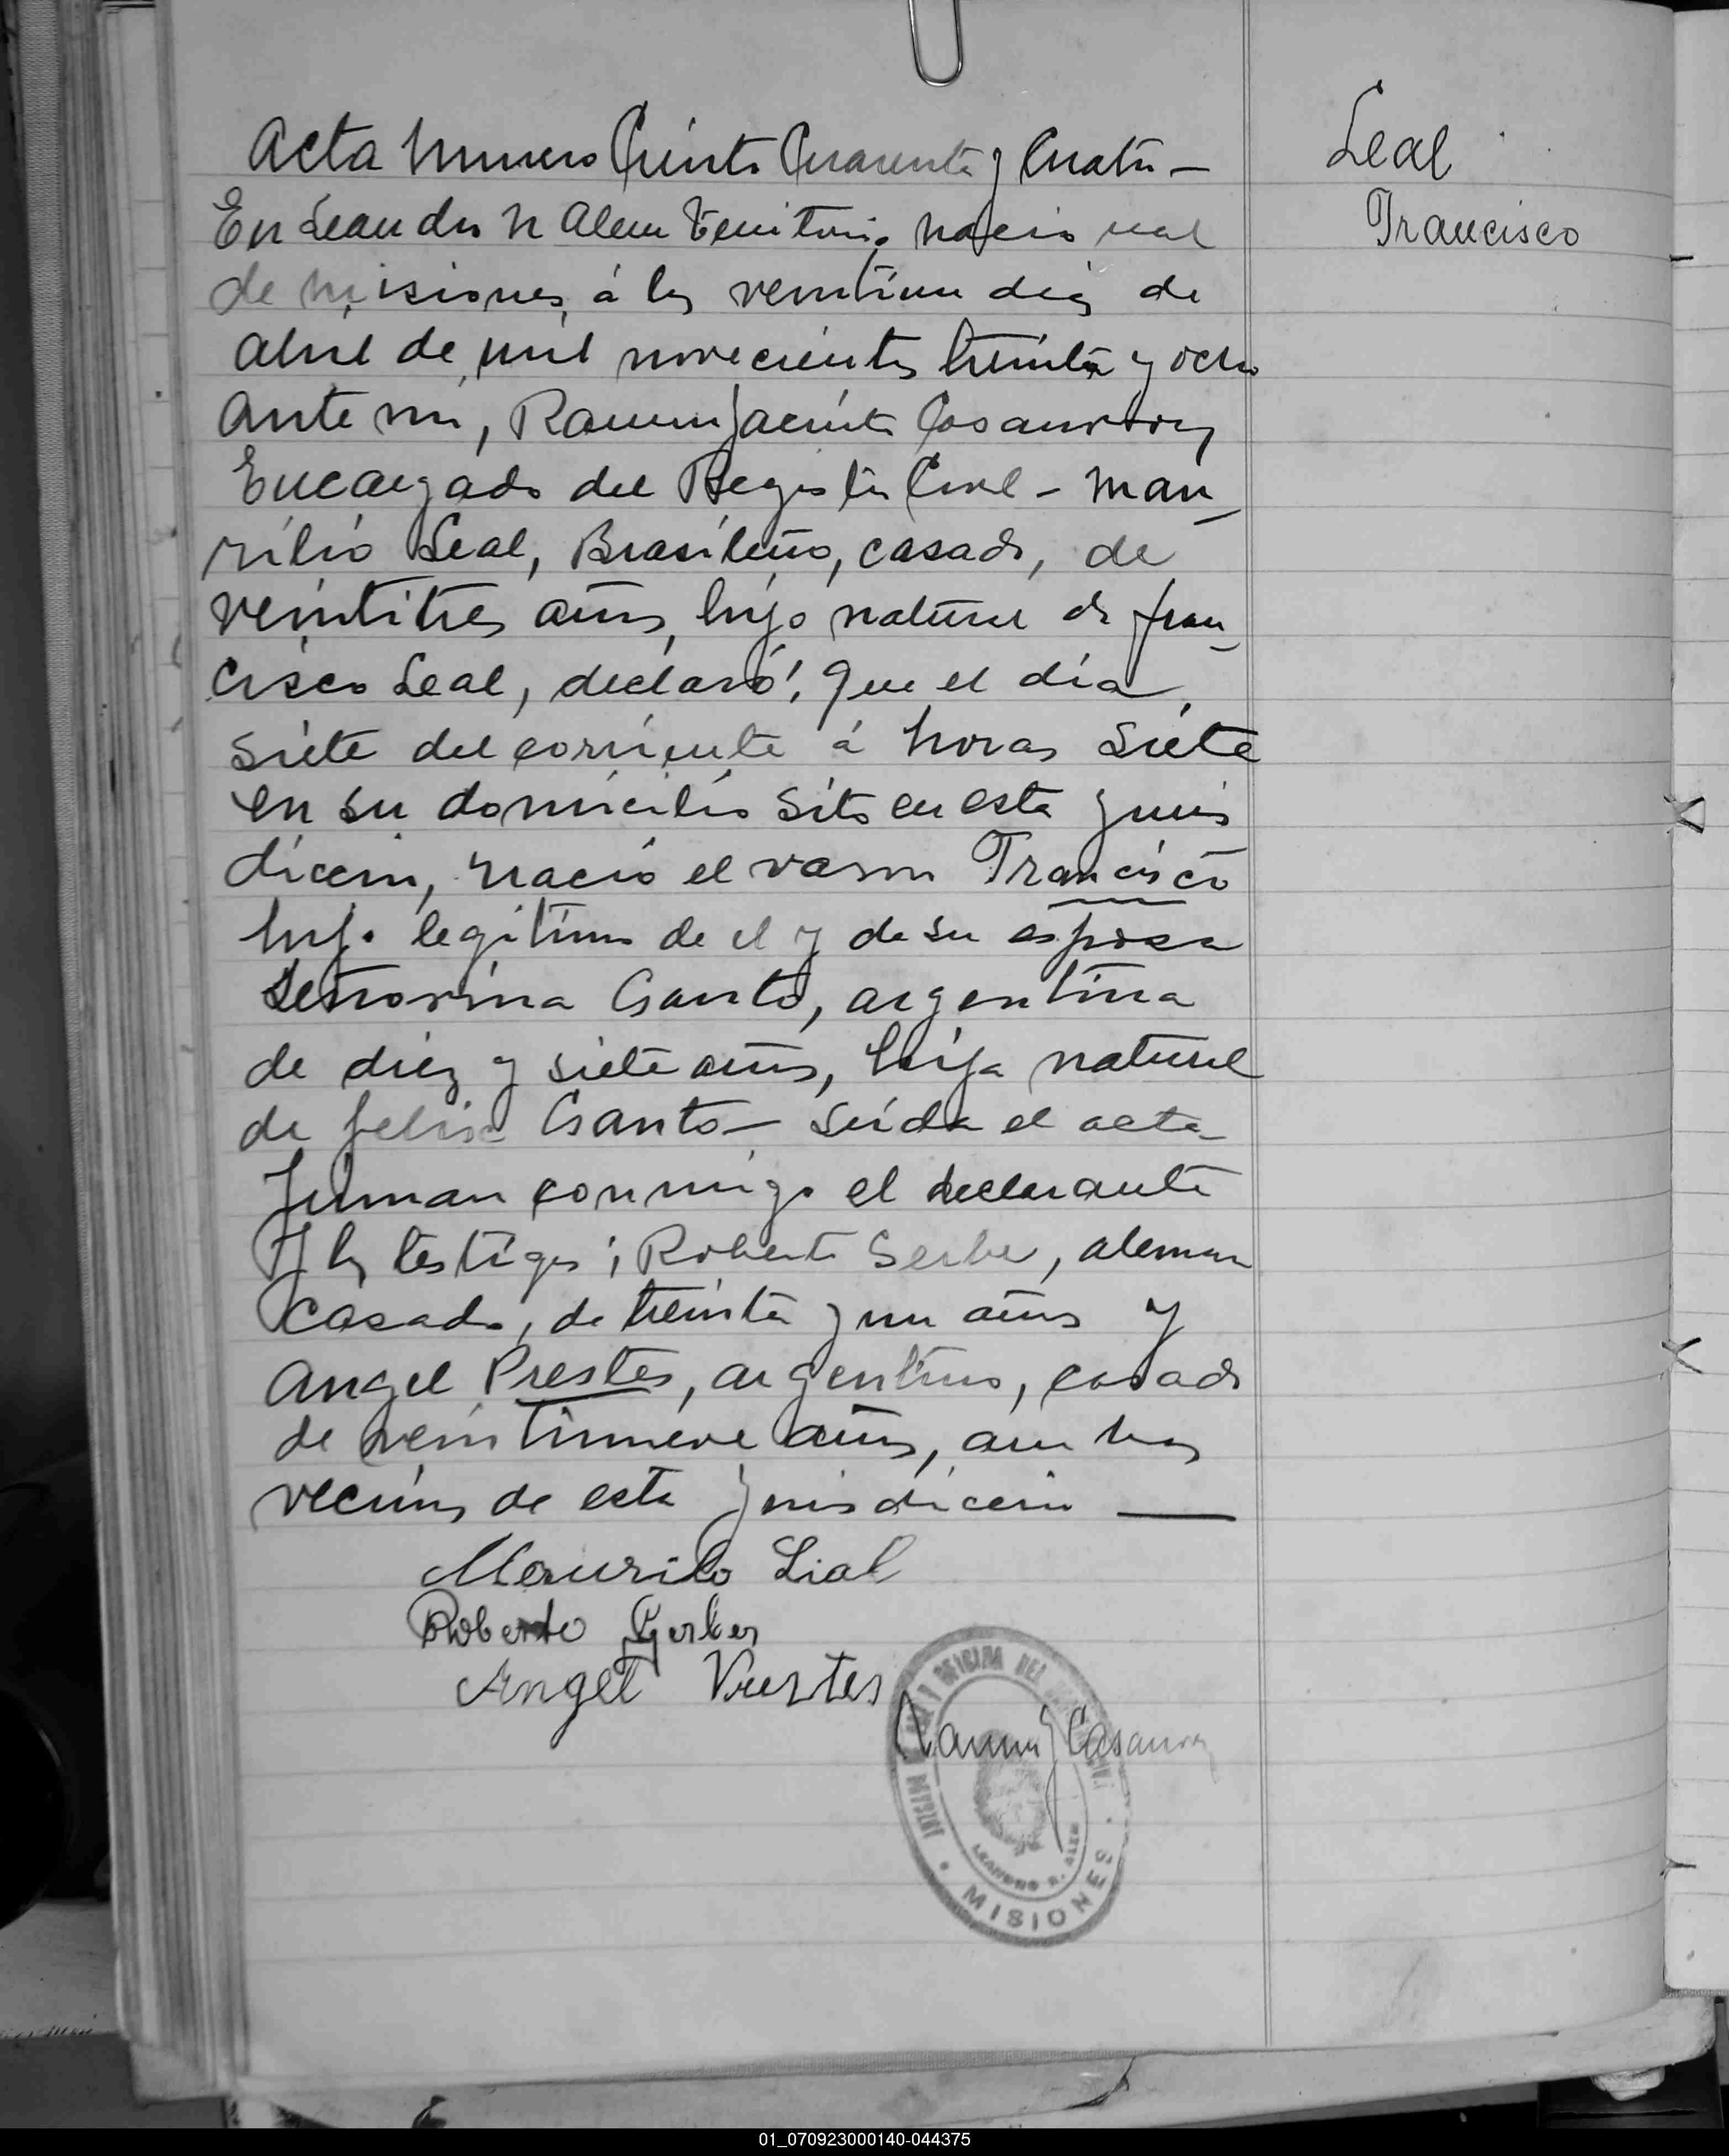 Acta Numero Ciento Cuarenta y Cuatro —
En Leandro N Alem Territorio Nacional
de Misiones, á los veintiun dias de
abril de mil novecientos treinta y ocho
ante mi, Ramon Jacinto Casanovas
Encargado del Registro Civil - Mau_
rilio Leal, Brasileño, casado, de
veintitres años, hijo natural de Fran_
cisco Leal, declaró: Que el día
siete del corriente á horas siete
en su domicilio sito en esta juris
diccion, nació el varon Francisco
hijo legitimo de el y de su esposa
Señorina Canto, argentina
de diez y siete años, hija natural
de Canto — Leida el acta
firman conmigo el declarante
y los testigos; Roberto Serbe, aleman
casado, de treinta y un años y
Angel Prestes, argentino, casado
de veintinueve años, ambos
vecinos de esta jurisdiccion —
Maurilo Lial
Roberto Gerber
Angel Prestes
Ramon J Casanovas
LEANDRO N. ALEM
MISIONES
Leal
Francisco
01_070923000140-044375